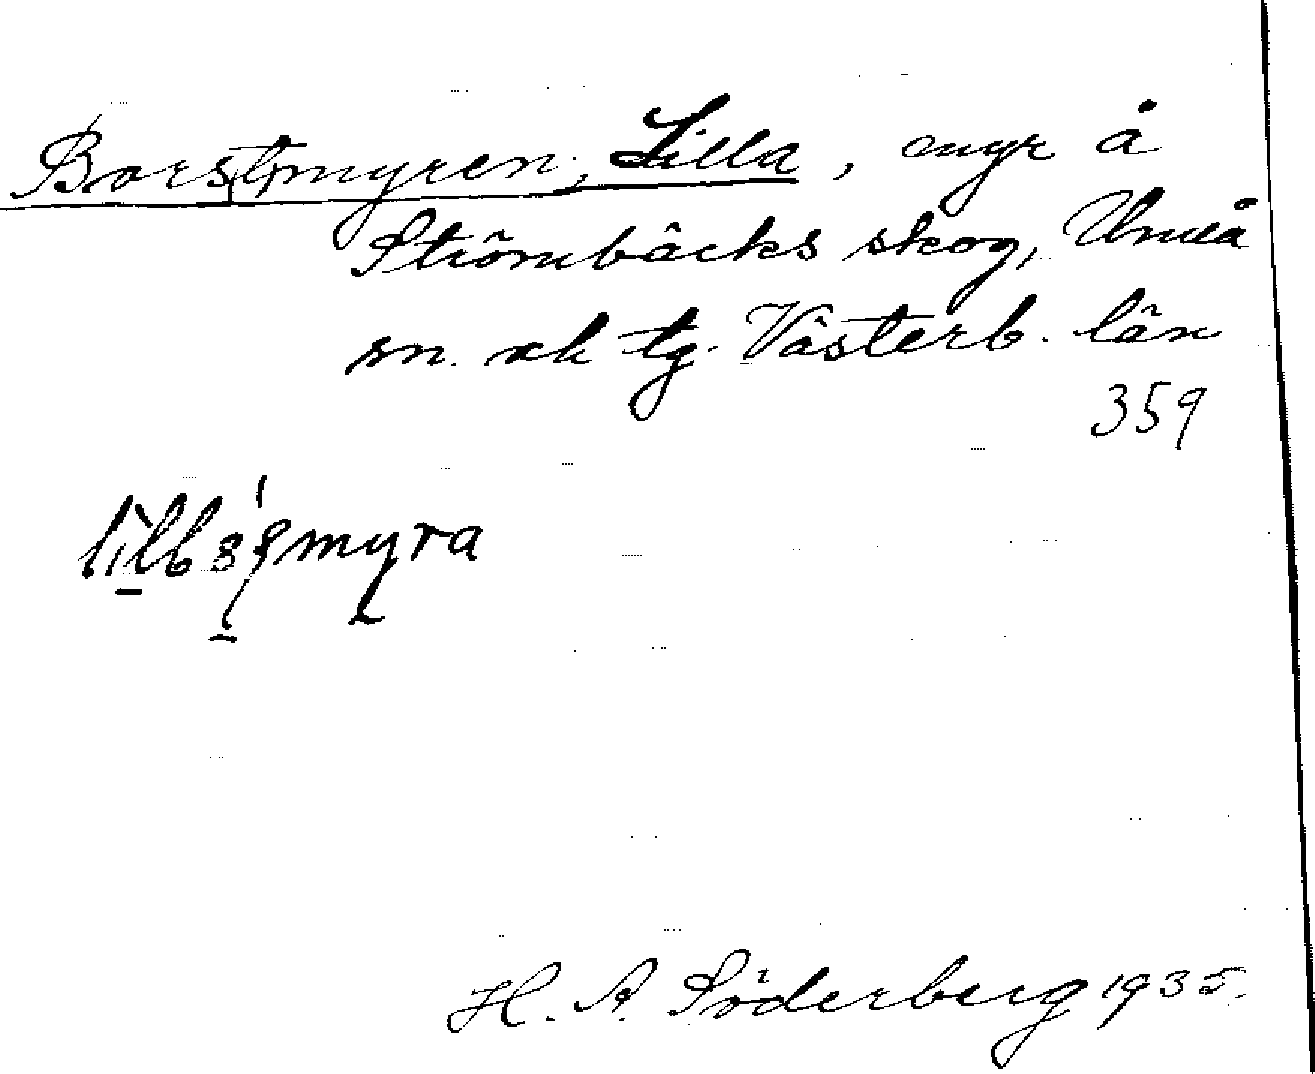 Borstmyren, Lilla, myr å
Strömbäcks skog, Umeå
sn. ok tg. Västerb. län
359
H. A. Söderberg 1935.